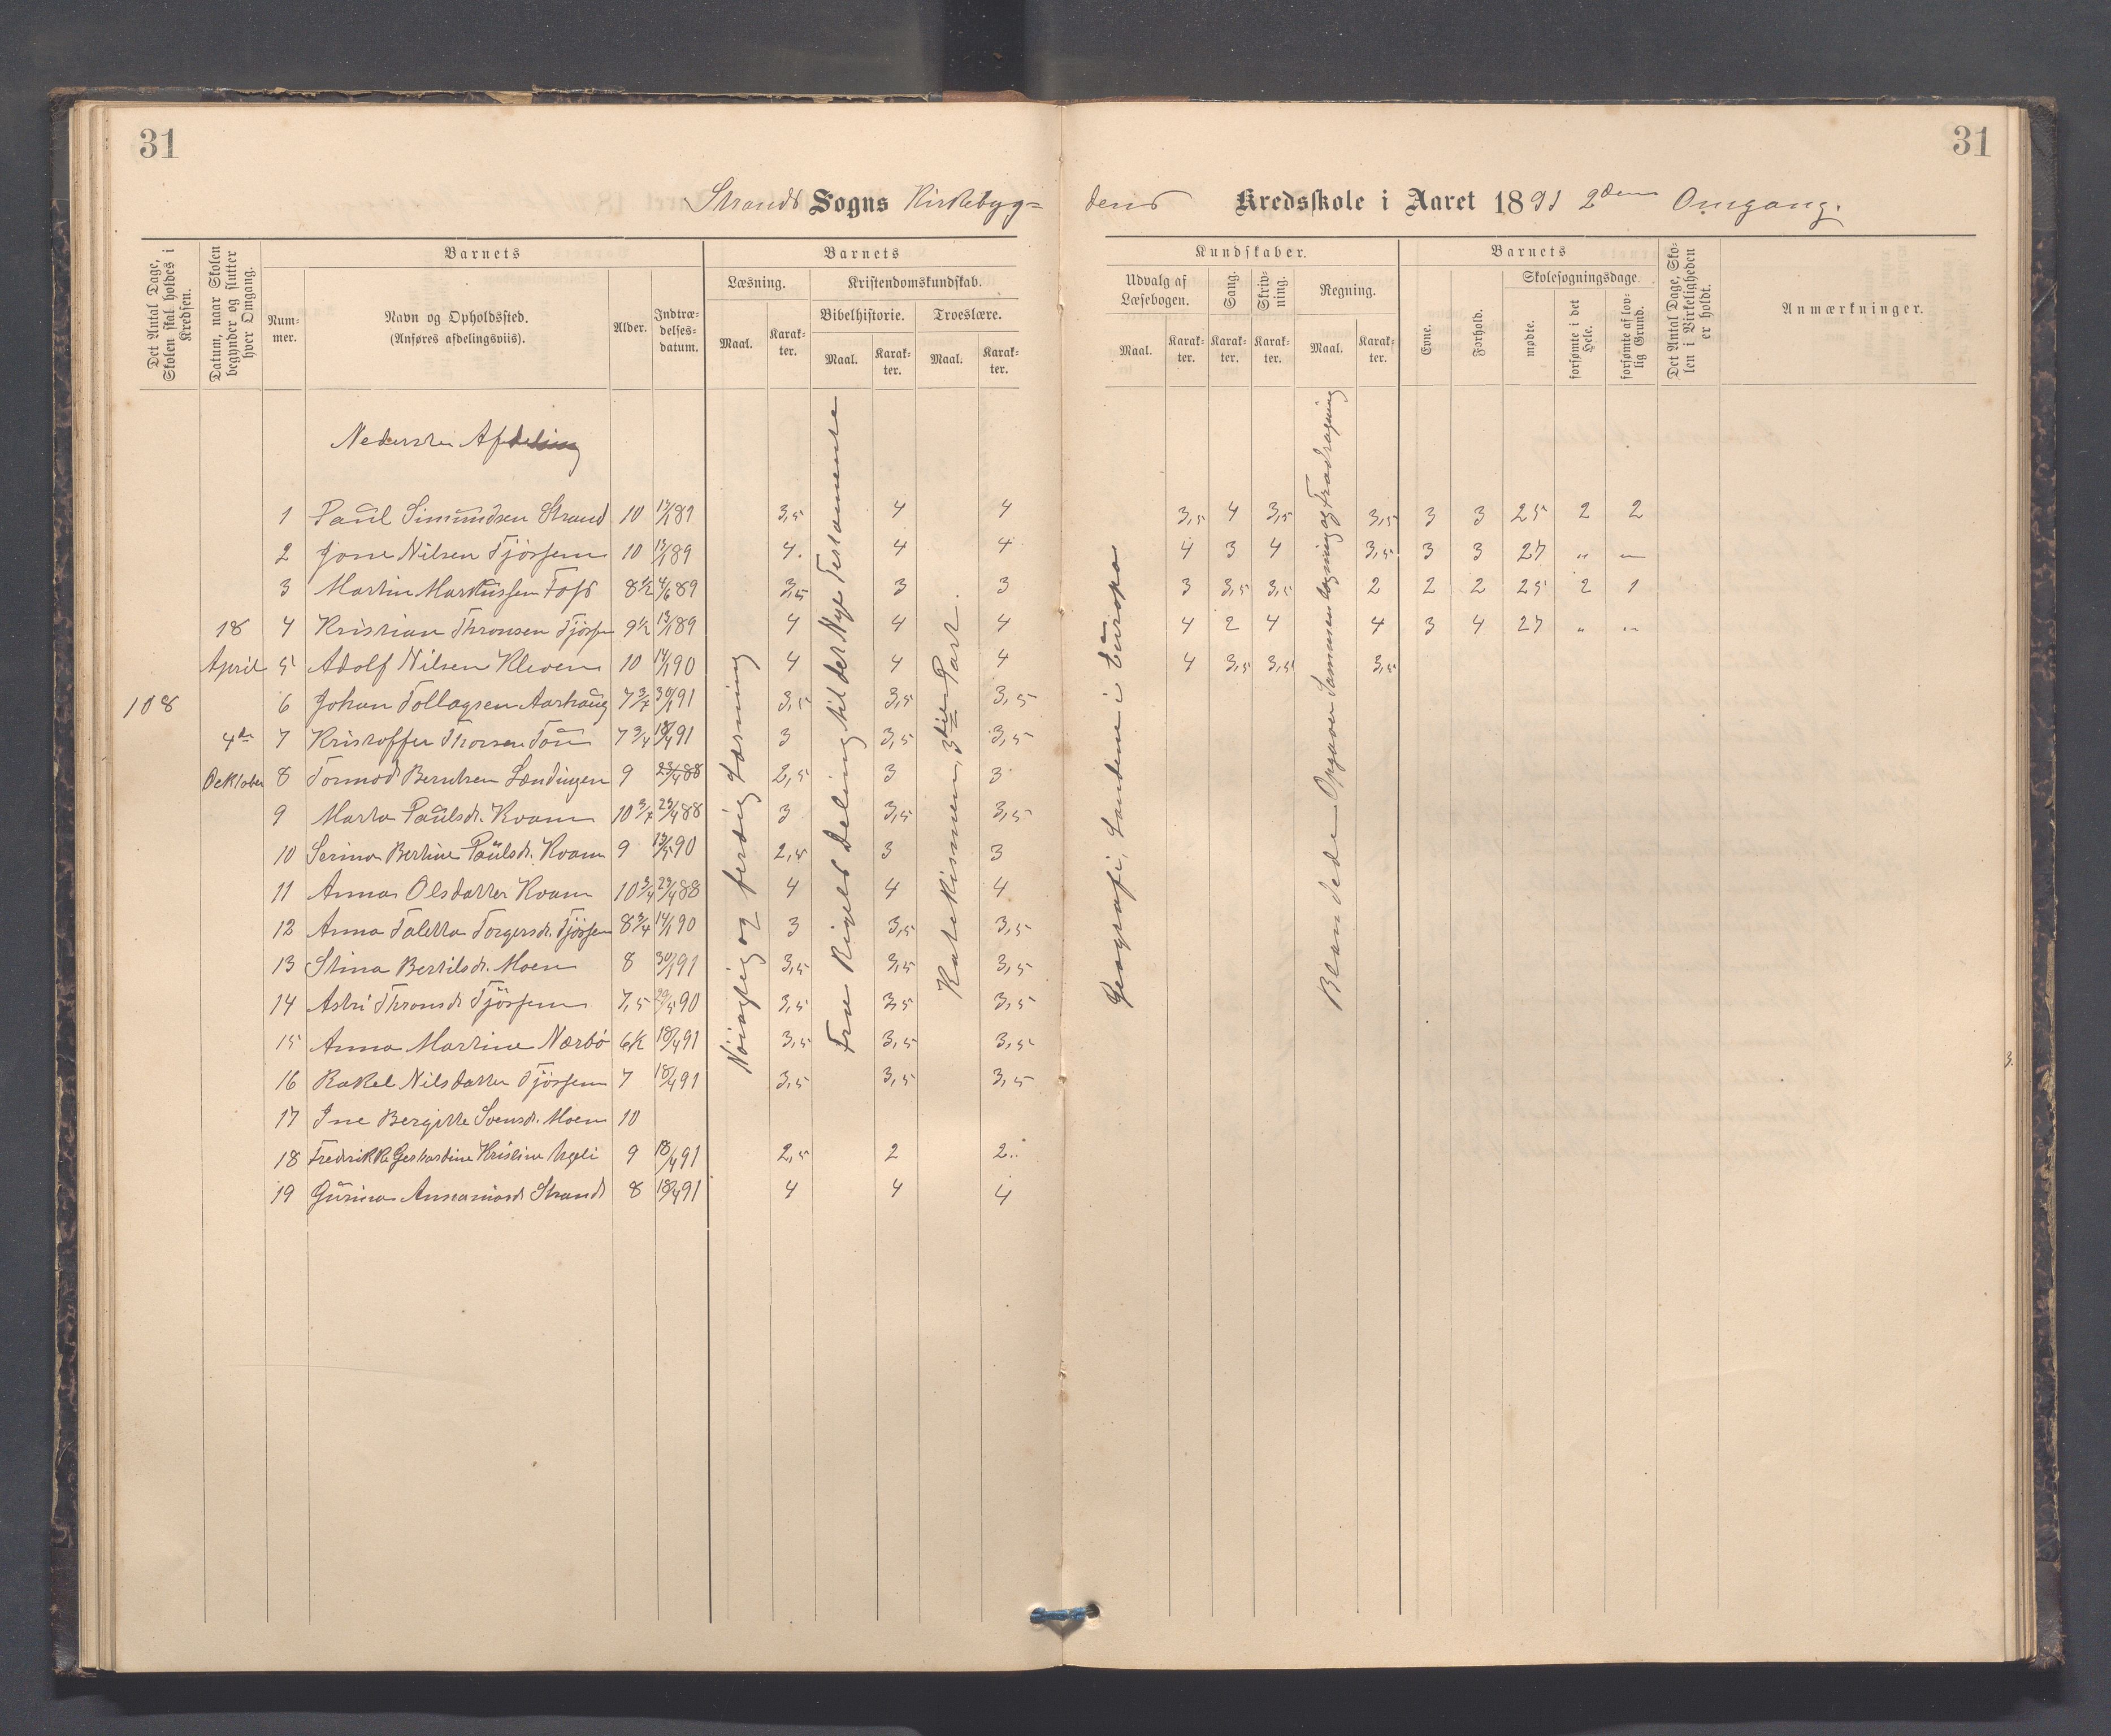 31
31
Strands Sogns Kirkebyg= dens Kredsskole i Aaret 1891 2den Omgang.
Det Antal Dage, Skolen skal holdes i Kredsen.
Datum, naar Skolen begynder og slutter hver Omgang.
Barnets
Num-mer.
Navn og Opholdssted. (Anføres afdelingsviis).
Alder.
Indtræ-delses-datum.
Barnets
Læsning.
Maal.
Karak-ter.
Kristendomskundskab.
Bibelhistorie.
Maal.
Karak-ter.
Troeslære.
Maal.
Karak-ter.
Kundskaber.
Udvalg af Læsebogen.
Maal.
Karak-ter.
Sang.
Karak-ter.
Skriv-ning.
Karak-ter.
Regning.
Maal.
Karak-ter.
Barnets
Evne.
Forhold.
Skolesøgningsdage.
mødte.
forsømte i det Hele.
forsømte af lov-lig Grund.
Det Antal Dage, Sko-len i Virkeligheden er holdt.
Anmærkninger.
Nedersten Afdeling
1 Paul Simundsen Strand 10 13/1 89 3,5 4 4 3,5 4 3,5 3,5 3 3 25 2 2
2 Jone Nilsen Tjössem 10 13/1 89 4. 4 4 4 3 4 3,5 3 3 27 " "
3 Martin Markussen Foss 8½ 4/6 89 3,5 3 3 3 3,5 3,5 2 2 2 25 2 1
18 4 Kristian Thronsen Tjössem 9½ 13/1 89 4 4 4 4 2 4 4 3 4 27 " "
April 5 Adolf Nilsen Kleven 10 14/1 90 4 4 4 4 3,5 3,5 3,5
108 6 Johan Tollagsen Aarhaug 7¾ 30/1 91 3,5 3,5 3,5
4de 7 Kristoffer Thorsen Tau 7¾ 18/4 91 3 3,5 3,5
Ocktober 8 Tormod Berntsen Lændingen 9 23/4 88 2,5 3 3
9 Marta Paulsdt. Kvam 10¾ 23/4 88 3 3,5 3,5
10 Serina Bertine Paulsdt. Kvam 9 13/5 90 2,5 3 3
11 Anna Olsdatter Kvam 10¾ 23/4 88 4 4 4
12 Anna Taletta Torgersdt. Tjössem 8¾ 14/1 90 3 3,5 3,5
13 Stina Bertilsdt. Moen 8 30/1 91 3,5 3,5 3,5
14 Astri Thronsdt Tjössem 7,5 20/5 90 3,5 3,5 3,5
15 Anna Martine Nærbö 6½ 18/4 91 3,5 3,5 3,5
16 Rakel Nilsdatter Tjössem 7 18/4 91 3,5 3,5 3,5
17 Ine Bergitte Svensdt. Moen 10
18 Fredrikke Gerhardine Kristine Ugeli 9 18/4 91 2,5 2 2
19 Gurina Ananiasdt Strand 8 18/4 91 4 4 4
Nöiagtig og ferdig Læsning
Fra Rigets Deling til det Nye Testamente
Katekismen, 3die Part.
Geografi, Landene i Europa
Blandede Opgaver Sammenlægning og Fradragning